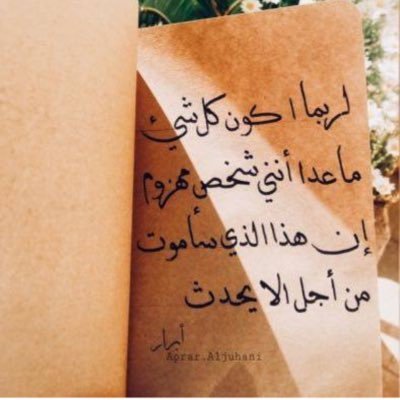 لربما اكون كل شيئ
ماعدا أنني شخص مهزوم
إن هذا الذي سأموت
من أجل الا يحدث
أبرار
Abrar.Aljuhani